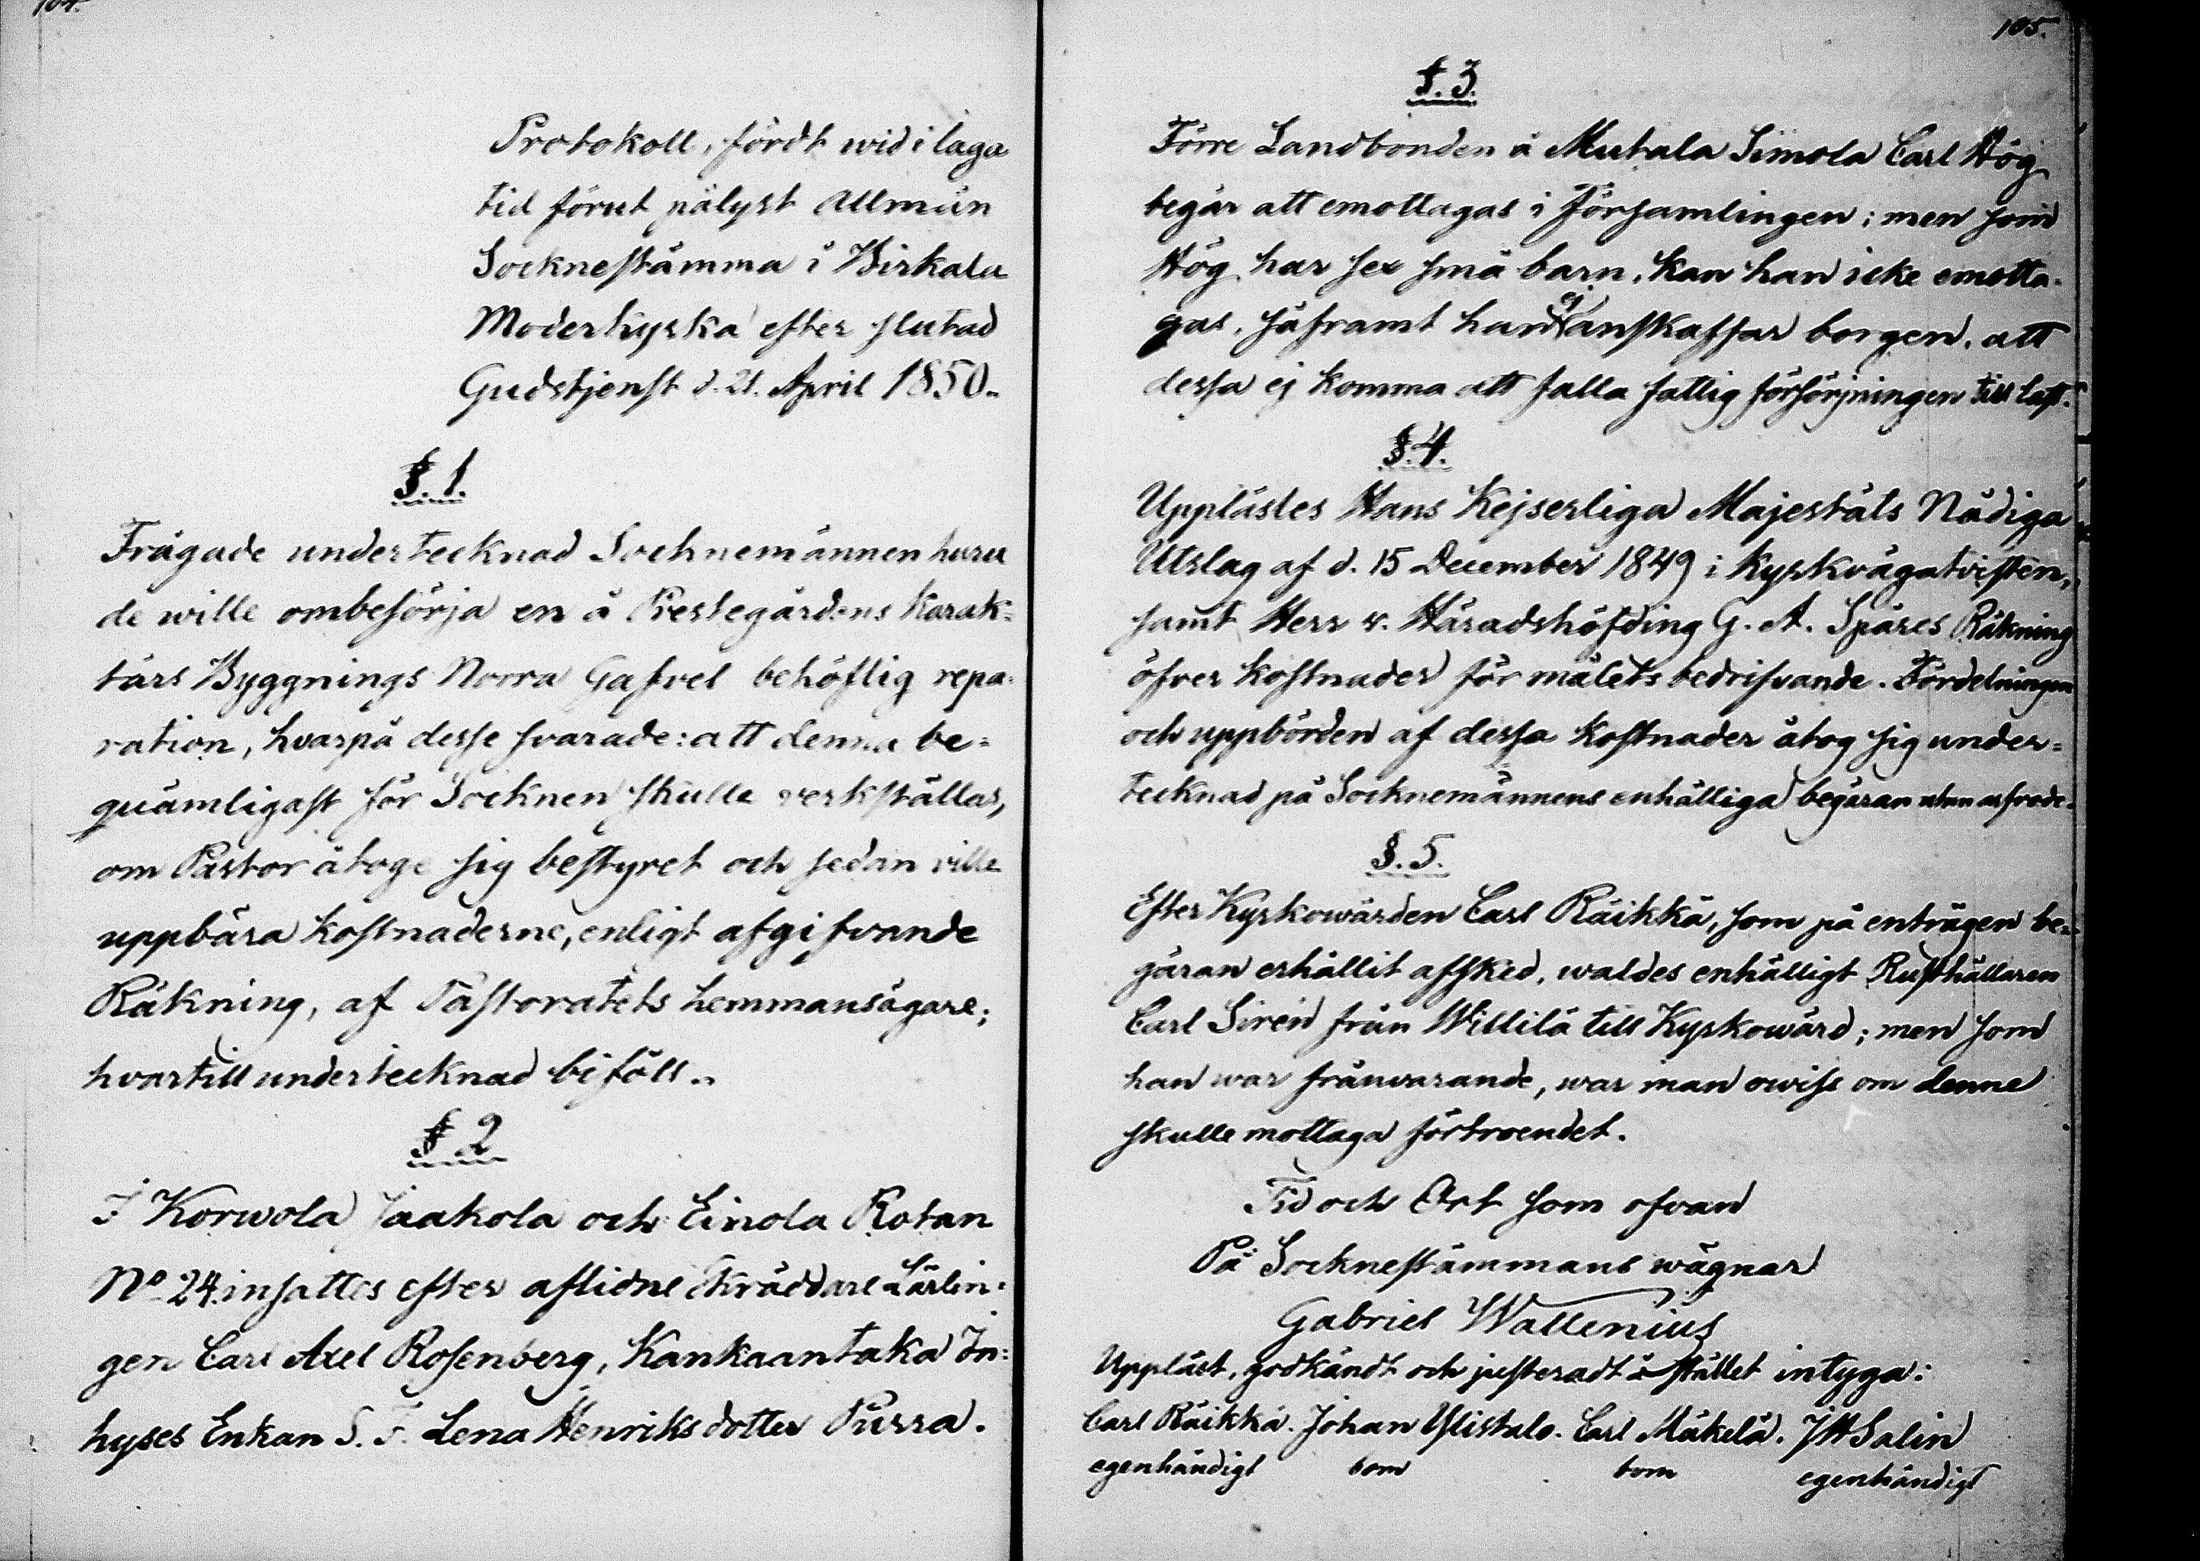 104.
Protokoll, fördt wid i laga
tid förut pålyst allmän
Socknestämma i Birkala
Moderkyrka efter slutad
Gudstjenst d. 21. April 1850.
§. 1.
Frågade undertecknad Socknemännen huru
de wille ombesörja en å Prestegårdens Karak=
tärs Byggnings Norra Gafvel behöflig repa-
ration, hvarpå desse svarade: att denna be=
quämligast för Socknen skulle verkställas,
om Pastor åtoge sig bestyret och sedan ville
uppbära kostnaderne, enligt afgifvande
Räkning, af Pastoratets hemmansägare;
hvartill undertecknad biföll.
§ 2
I Korwola Jaakola och Einola Rotan
No 24. insattes efter aflidne Skräddare Lärlin=
gen Carl Axel Rosenberg, Kankaantaka In=
hyses Enkan S. F. Lena Henriksdotter Purra.
105.
§. 3.
Förre Landbonden å Mutala Simola Carl Hög
begär att emottagas i Församlingen; men som
Hög har sex små barn, kan han icke emotta-
gas, såframt han ej anskaffar borgen, att
dessa ej komma att falla fattig försörjningen till last.
§. 4.
Upplästes Hans Kejserliga Majestäts Nådiga
Utslag af d. 15 December 1849 i kyrkvägatvisten,
samt Herr v. Häradshöfding G. A. Spåres Räkning
öfver kostnader för målets bedrifvande. Fördelningen
och uppbörden af dessa kostnader åtog sig under=
tecknad på Socknemännens enhälliga begäran utan arfvode.
§. 5.
Efter Kyrkowärden Carl Räikkä, som på enträgen be=
gäran erhållit afsked, waldes enhälligt Rusthållaren
Carl Sirén från Willilä till Kyrkowärd; men som
han war frånvarande, war man owiss om denne
skulle mottaga förtroendet.
Tid och Ort som ofvan
På Socknestämmans wägnar
Gabriel Wallenius
Uppläst, godkändt och justeradt å stället intyga:
Carl Räikkä. Johan Ylistalo. Carl Mäkelä. J H Salin
egenhändigt bom bom egenhändigt